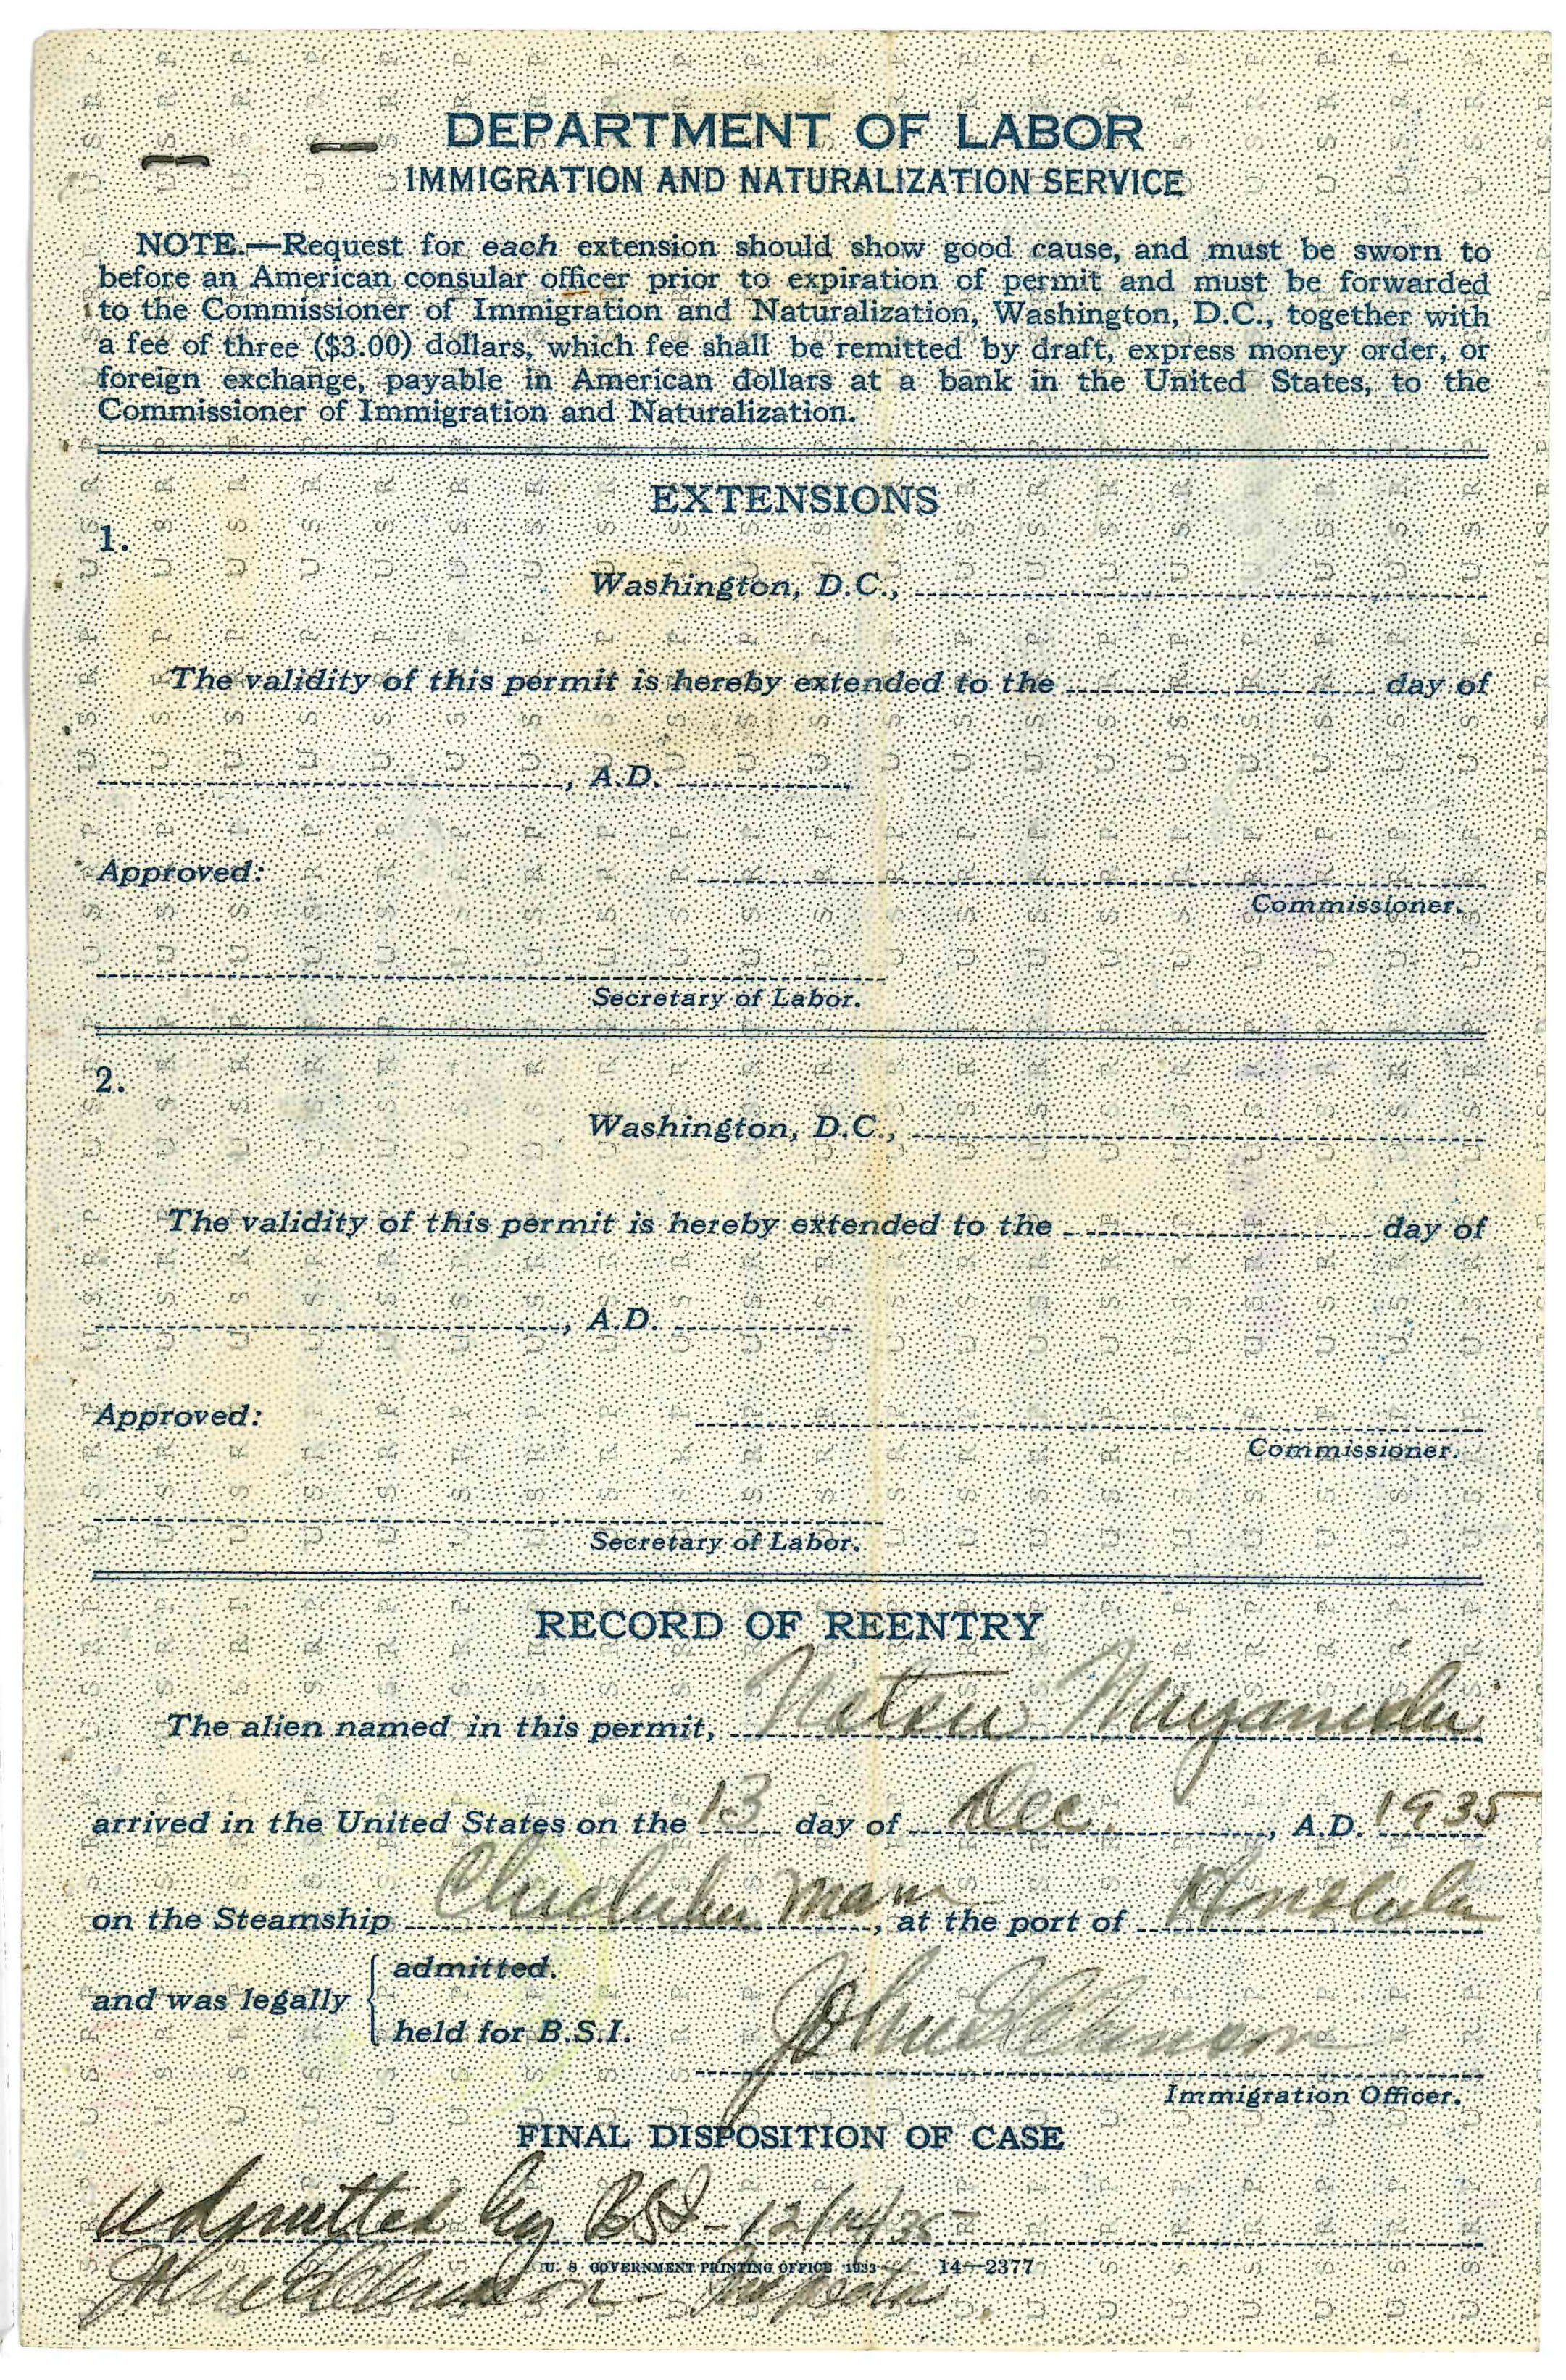 DEPARTMENT OF LABOR
IMMIGRATION AND NATURALIZATION SERVICE
NOTE.—Request for each extension should show good cause, and must be sworn to
before an American consular officer prior to expiration of permit and must be forwarded
to the Commissioner of Immigration and Naturalization, Washington, D.C., together with
a fee of three ($3.00) dollars, which fee shall be remitted by draft, express money order, or
foreign exchange, payable in American dollars at a bank in the United States, to the
Commissioner of Immigration and Naturalization.
EXTENSIONS
1.
Washington, D.C.,
The validity of this permit is hereby extended to the day of
, A.D.
Approved:
Commissioner.
Secretary of Labor.
2.
Washington, D.C.,
The validity of this permit is hereby extended to the day of
, A.D.
Approved:
Commissioner.
Secretary of Labor.
RECORD OF REENTRY
The alien named in this permit, Natsu
arrived in the United States on the 13 day of Dec. , A.D. 1935
on the Steamship Chichibu Maru, at the port of Honolulu
and was legally
admitted.
held for B.S.I.
Immigration Officer.
FINAL DISPOSITION OF CASE
Admitted by BSI - 12/14/35
U. S. GOVERNMENT PRINTING OFFICE 1933 14—2377
Inspector